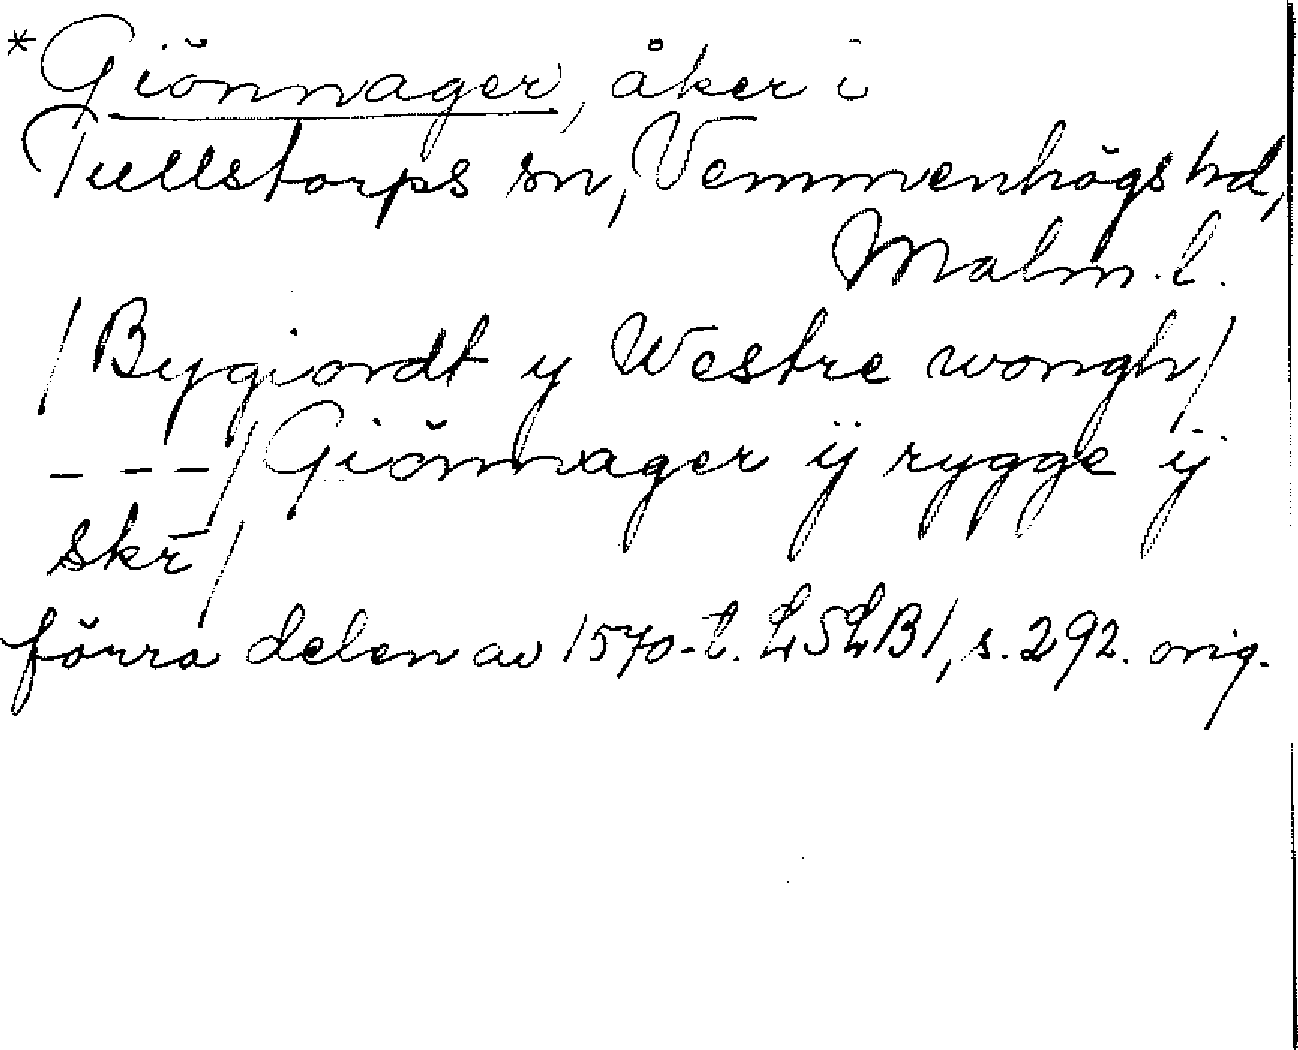 *Giönnager, åker i
Tullstorps sn, Vemmenhögs hd,
Malm. l.
/Bygiordt y Westre wongh/
- - -/Giönnager ÿ rygge ÿ
skr/
förra delen av 1570-t. LSLB1, s. 292. orig.